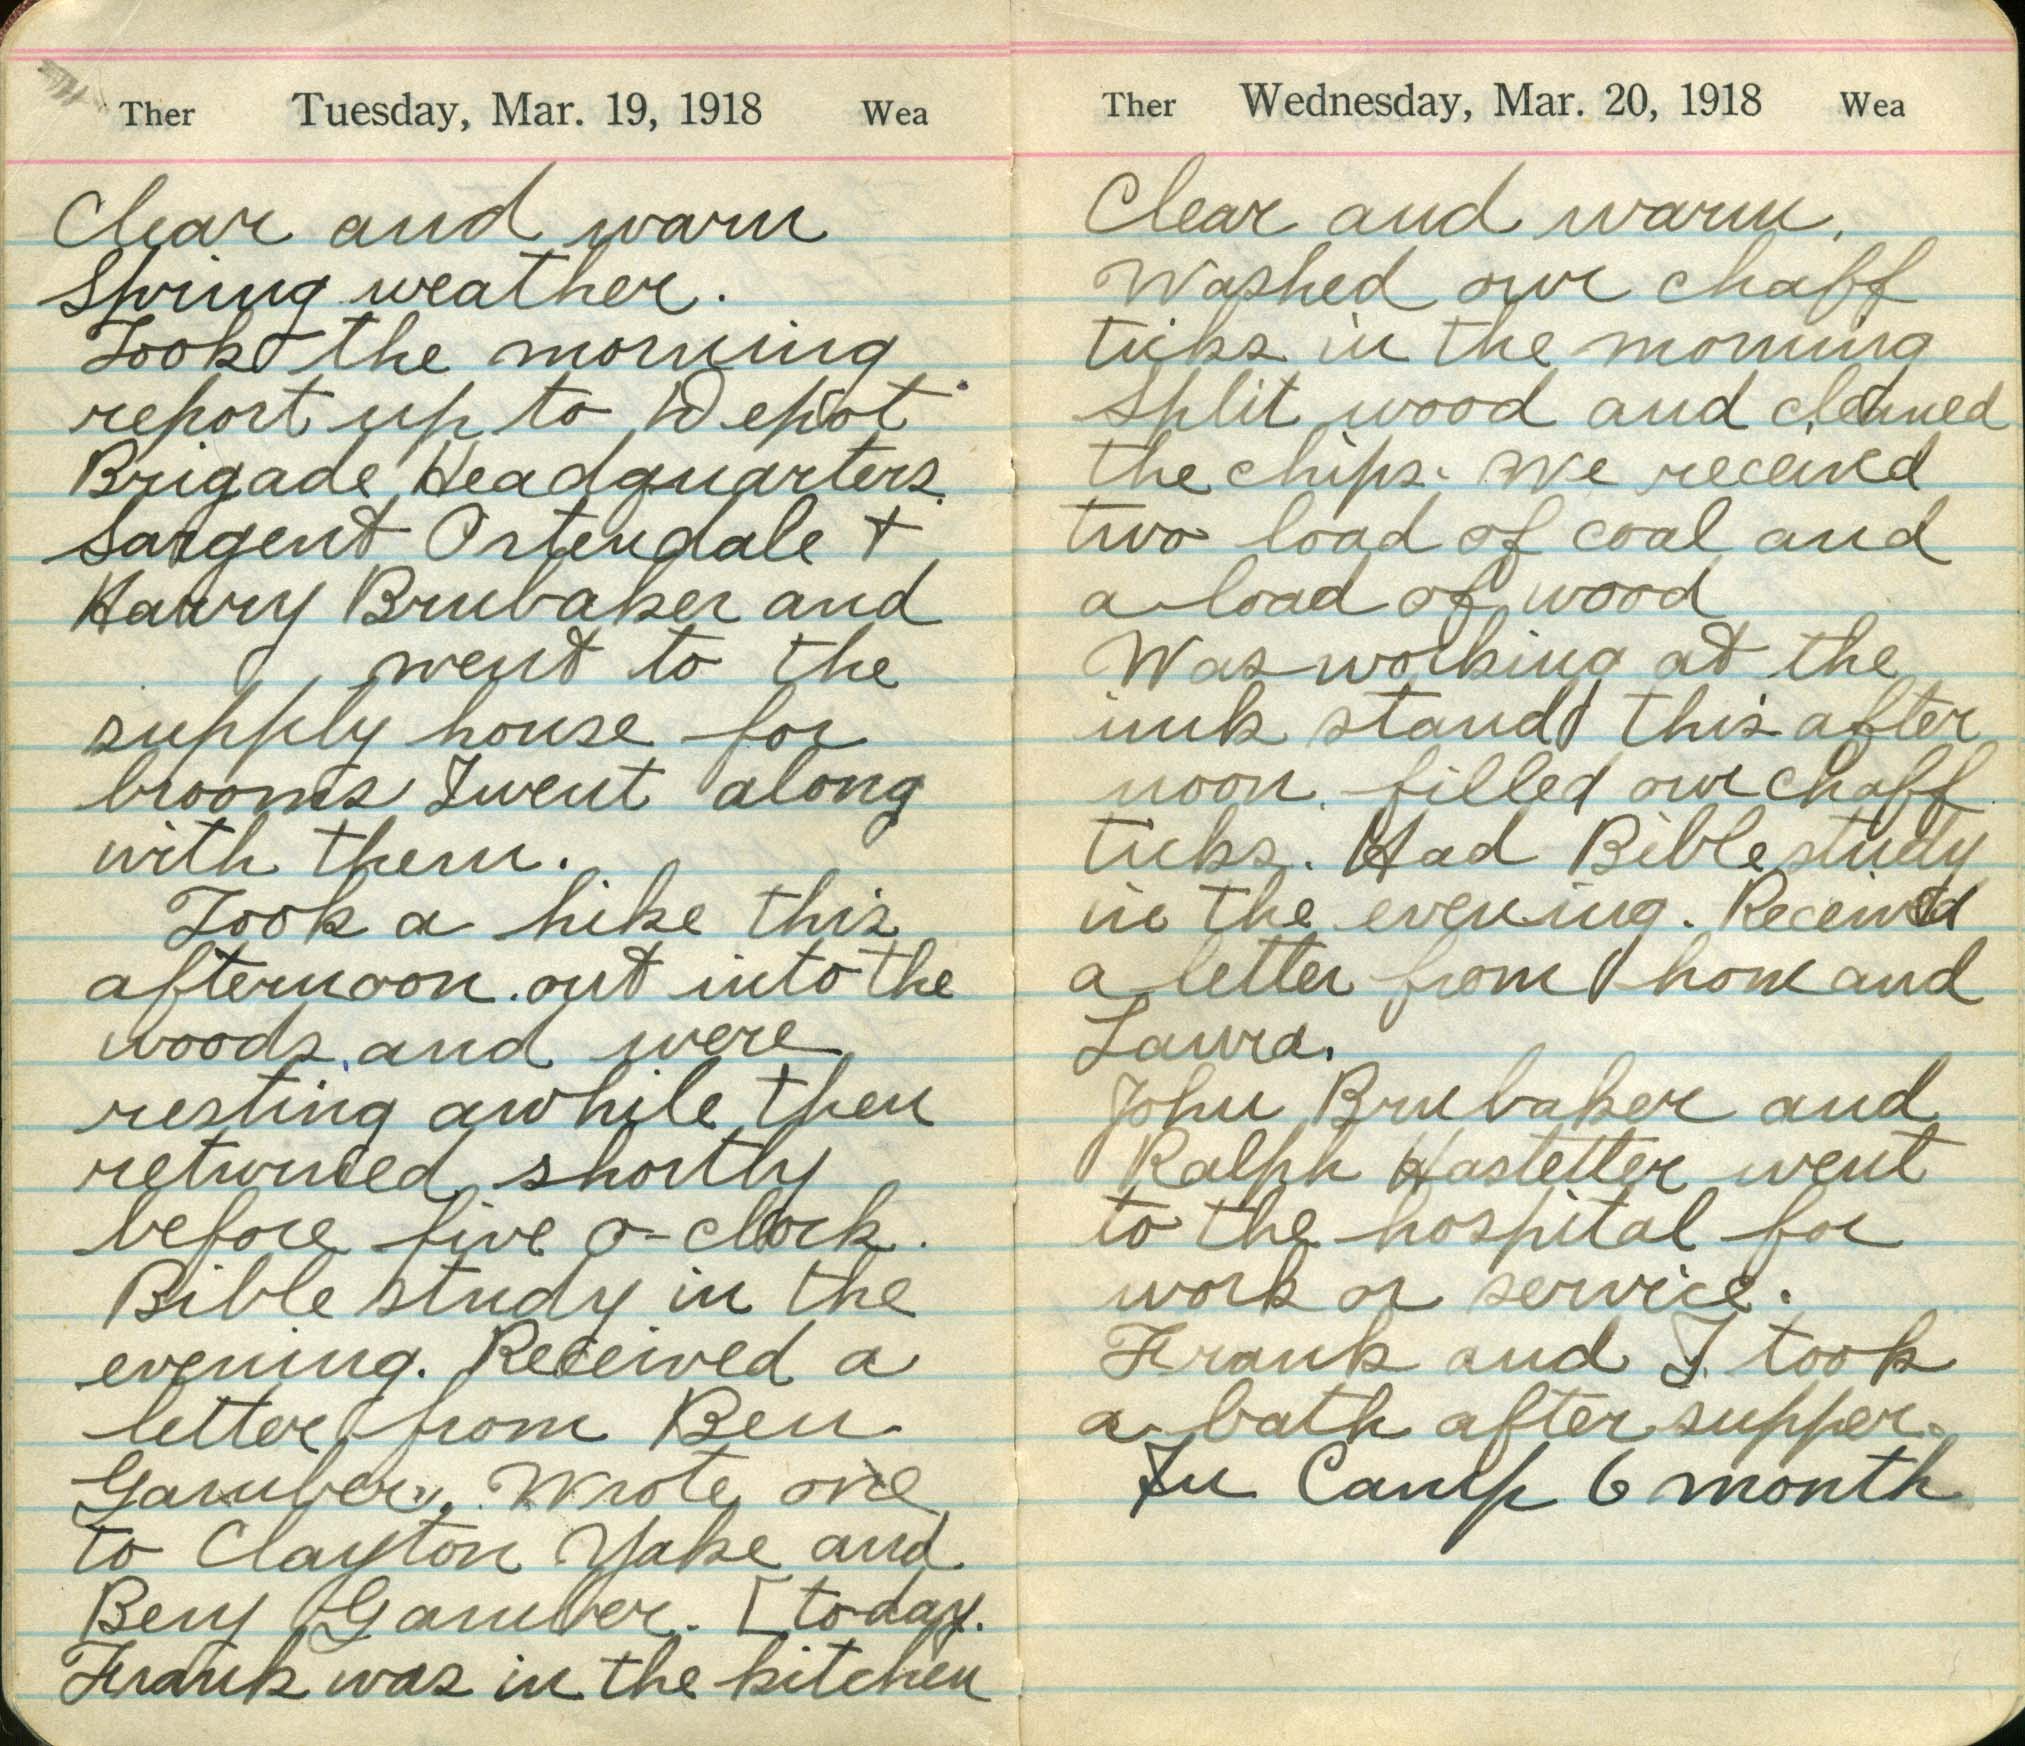 Ther Tuesday, Mar. 19, 1918 Wea
Clear and warm
Spring weather.
Took the morning
report up to Depot
Brigade Headquarters.
Sargent Ostendale +
Harry Brubaker and
went to the
supply house for
brooms I went along
with them.
Took a hike this
afternoon. out into the
woods, and were
resting awhile then
returned shortly
before five o-clock.
Bible study in the
evening. Received a
letter from Ben
Gamber. Wrote one
to Clayton Yake and
Benj Gamber. [today.
Frank was in the kitchen
Ther Wednesday, Mar. 20, 1918 Wea
Clear and warm.
Washed our chaff
ticks in the morning
Split wood and cleaned
the chips. We received
two load of coal and
a load of wood
Was working at the
ink stand this after
noon. filled our chaff
ticks. Had Bible study
in the evening. Received
a letter from home and
Laura.
John Brubaker and
Ralph Hastetter went
to the hospital for
work or service.
Frank and I took
a bath after supper.
In Camp 6 month